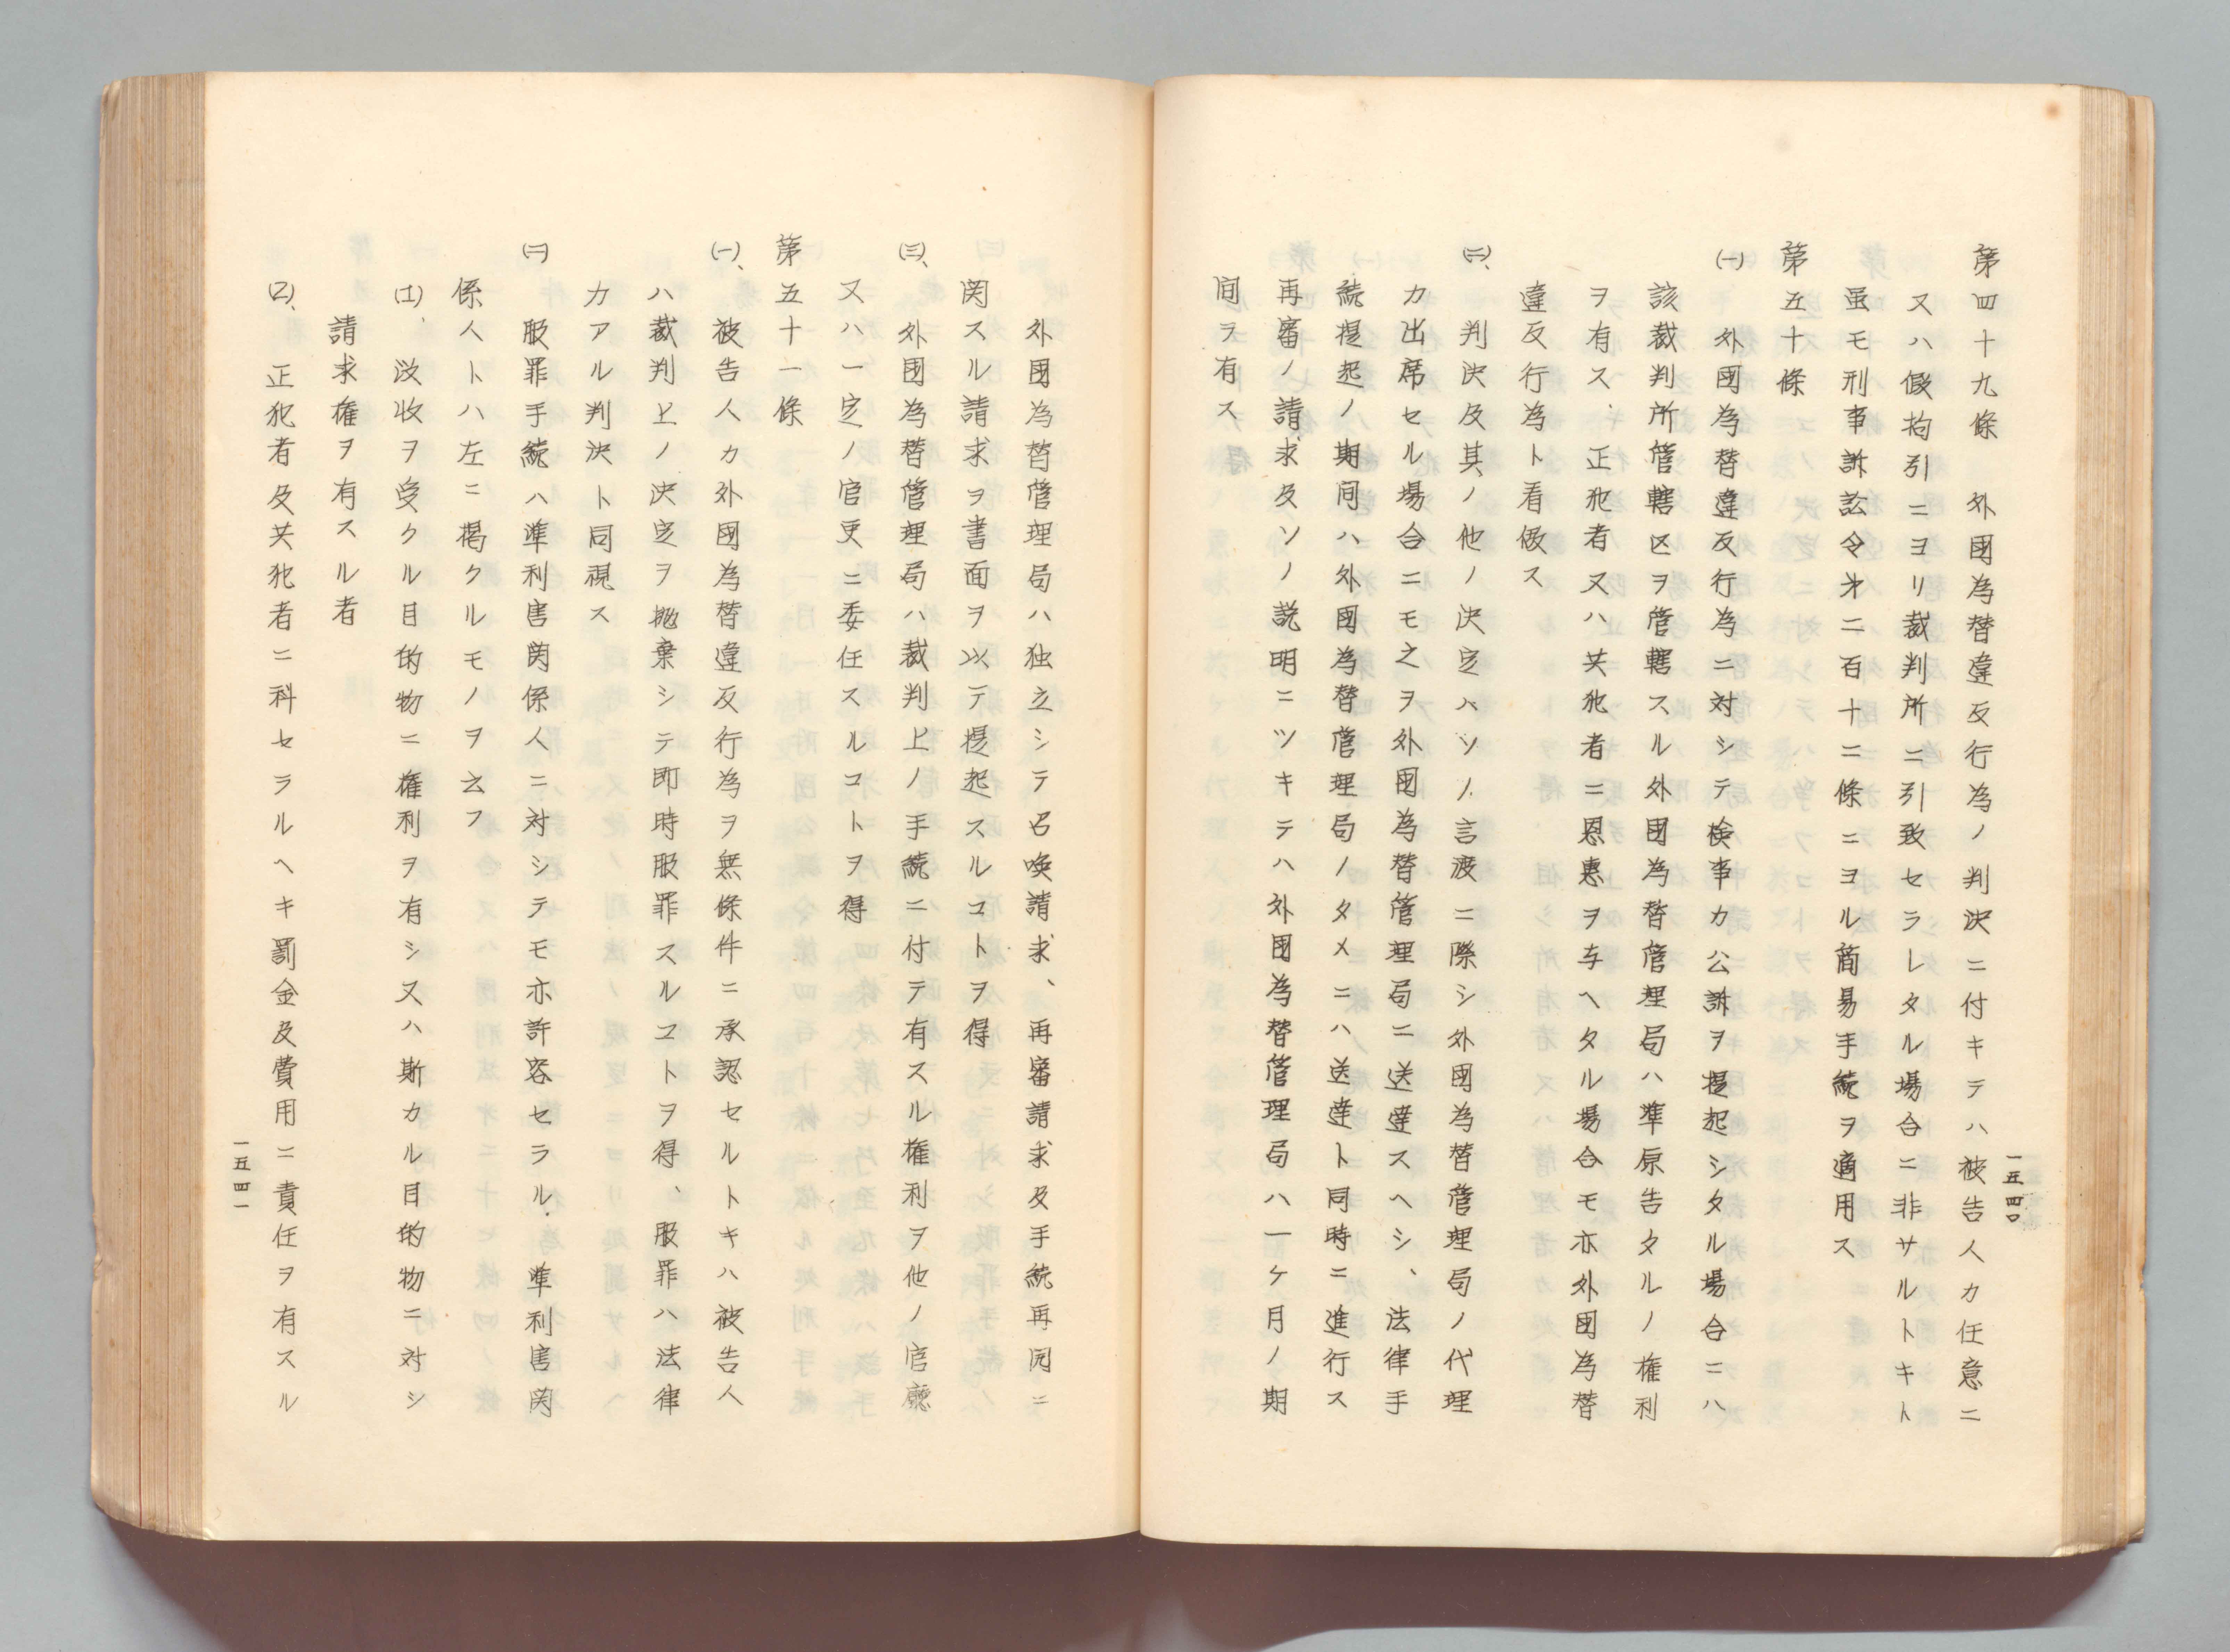 第四十九條　外國為替違反行為ノ判決ニ付キテハ被告人カ任意ニ
又ハ假拘引ニヨリ裁判所ニ引致セラレタル場合ニ非サルトキト
虽モ刑事訴訟令才二百十二條ニヨル簡易手続ヲ適用ス
第五十條
(一)　外國為替違反行為ニ対シテ検事カ公訴ヲ提起シタル場合ニハ
該裁判所管轄区ヲ管轄スル外國為替管理局ハ準原告タルノ権利
ヲ有ス、正犯者又ハ共犯者ニ恩惠ヲ与ヘタル場合モ亦外國為替
違反行為ト看做ス
(二)、判決及其ノ他ノ決定ハソノ言渡ニ際シ外國為替管理局ノ代理
カ出席セル場合ニモ之ヲ外國為替管理局ニ送達スヘシ、法律手
続提起ノ期间ハ外國為替管理局ノタメニハ送達ト同時ニ進行ス
再審ノ請求及ソノ説明ニツキテハ外國為替管理局ハ一ケ月ノ期
间ヲ有ス
一五四〇
外國為替管理局ハ独立シテ召喚請求、再審請求及手続再開ニ
関スル請求ヲ書面ヲ以テ提起スルコトヲ得
(三)、外國為替管理局ハ裁判上ノ手続ニ付テ有スル権利ヲ他ノ官廳
又ハ一定ノ官吏ニ委任スルコトヲ得
第五十一條
(一)、被告人カ外國為替違反行為ヲ無條件ニ承認セルトキハ被告人
ハ裁判上ノ決定ヲ抛棄シテ即時服罪スルコトヲ得、服罪ハ法律
カアル判決ト同視ス
(二)　服罪手続ハ準利害関係人ニ対シテモ亦許容セラル．準利害関
係人トハ左ニ揭クルモノヲ云フ
(1)、没收ヲ受クル目的物ニ権利ヲ有シ又ハ斯カル目的物ニ対シ
請求権ヲ有スル者
(2)、正犯者及共犯者ニ科セラルヘキ罰金及費用ニ責任ヲ有スル
一五四一